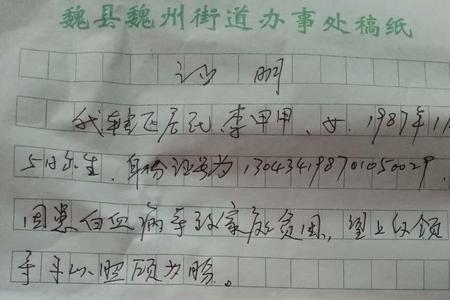 魏县魏州街道办事处稿纸
证明
我辖区居民李甲甲,女.1987年1月
5日出生.身份证号为130434198701050029.
因患白血病导致家庭贫困,望上级领
导予以照顾为盼。